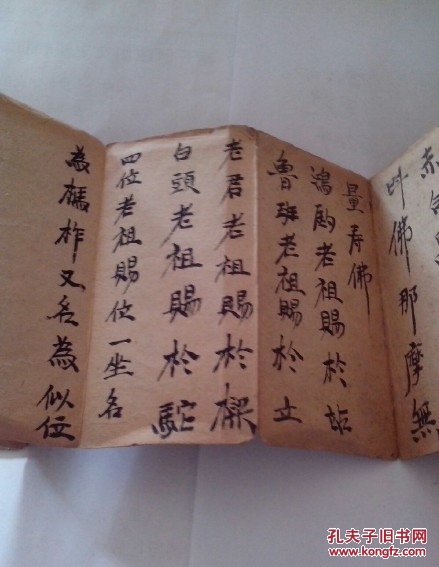 佛那摩無
量寿佛
鴻鈞老祖賜於站
魯班老祖賜於立
老君老祖賜於樑
白頭老祖賜於駝
四位老祖賜位一坐名
為榪柞又名為似位
孔夫子旧书网
www.kongfz.com